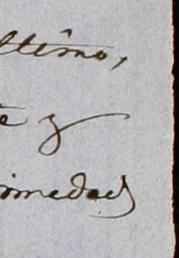 ltimo,
te y
imedad